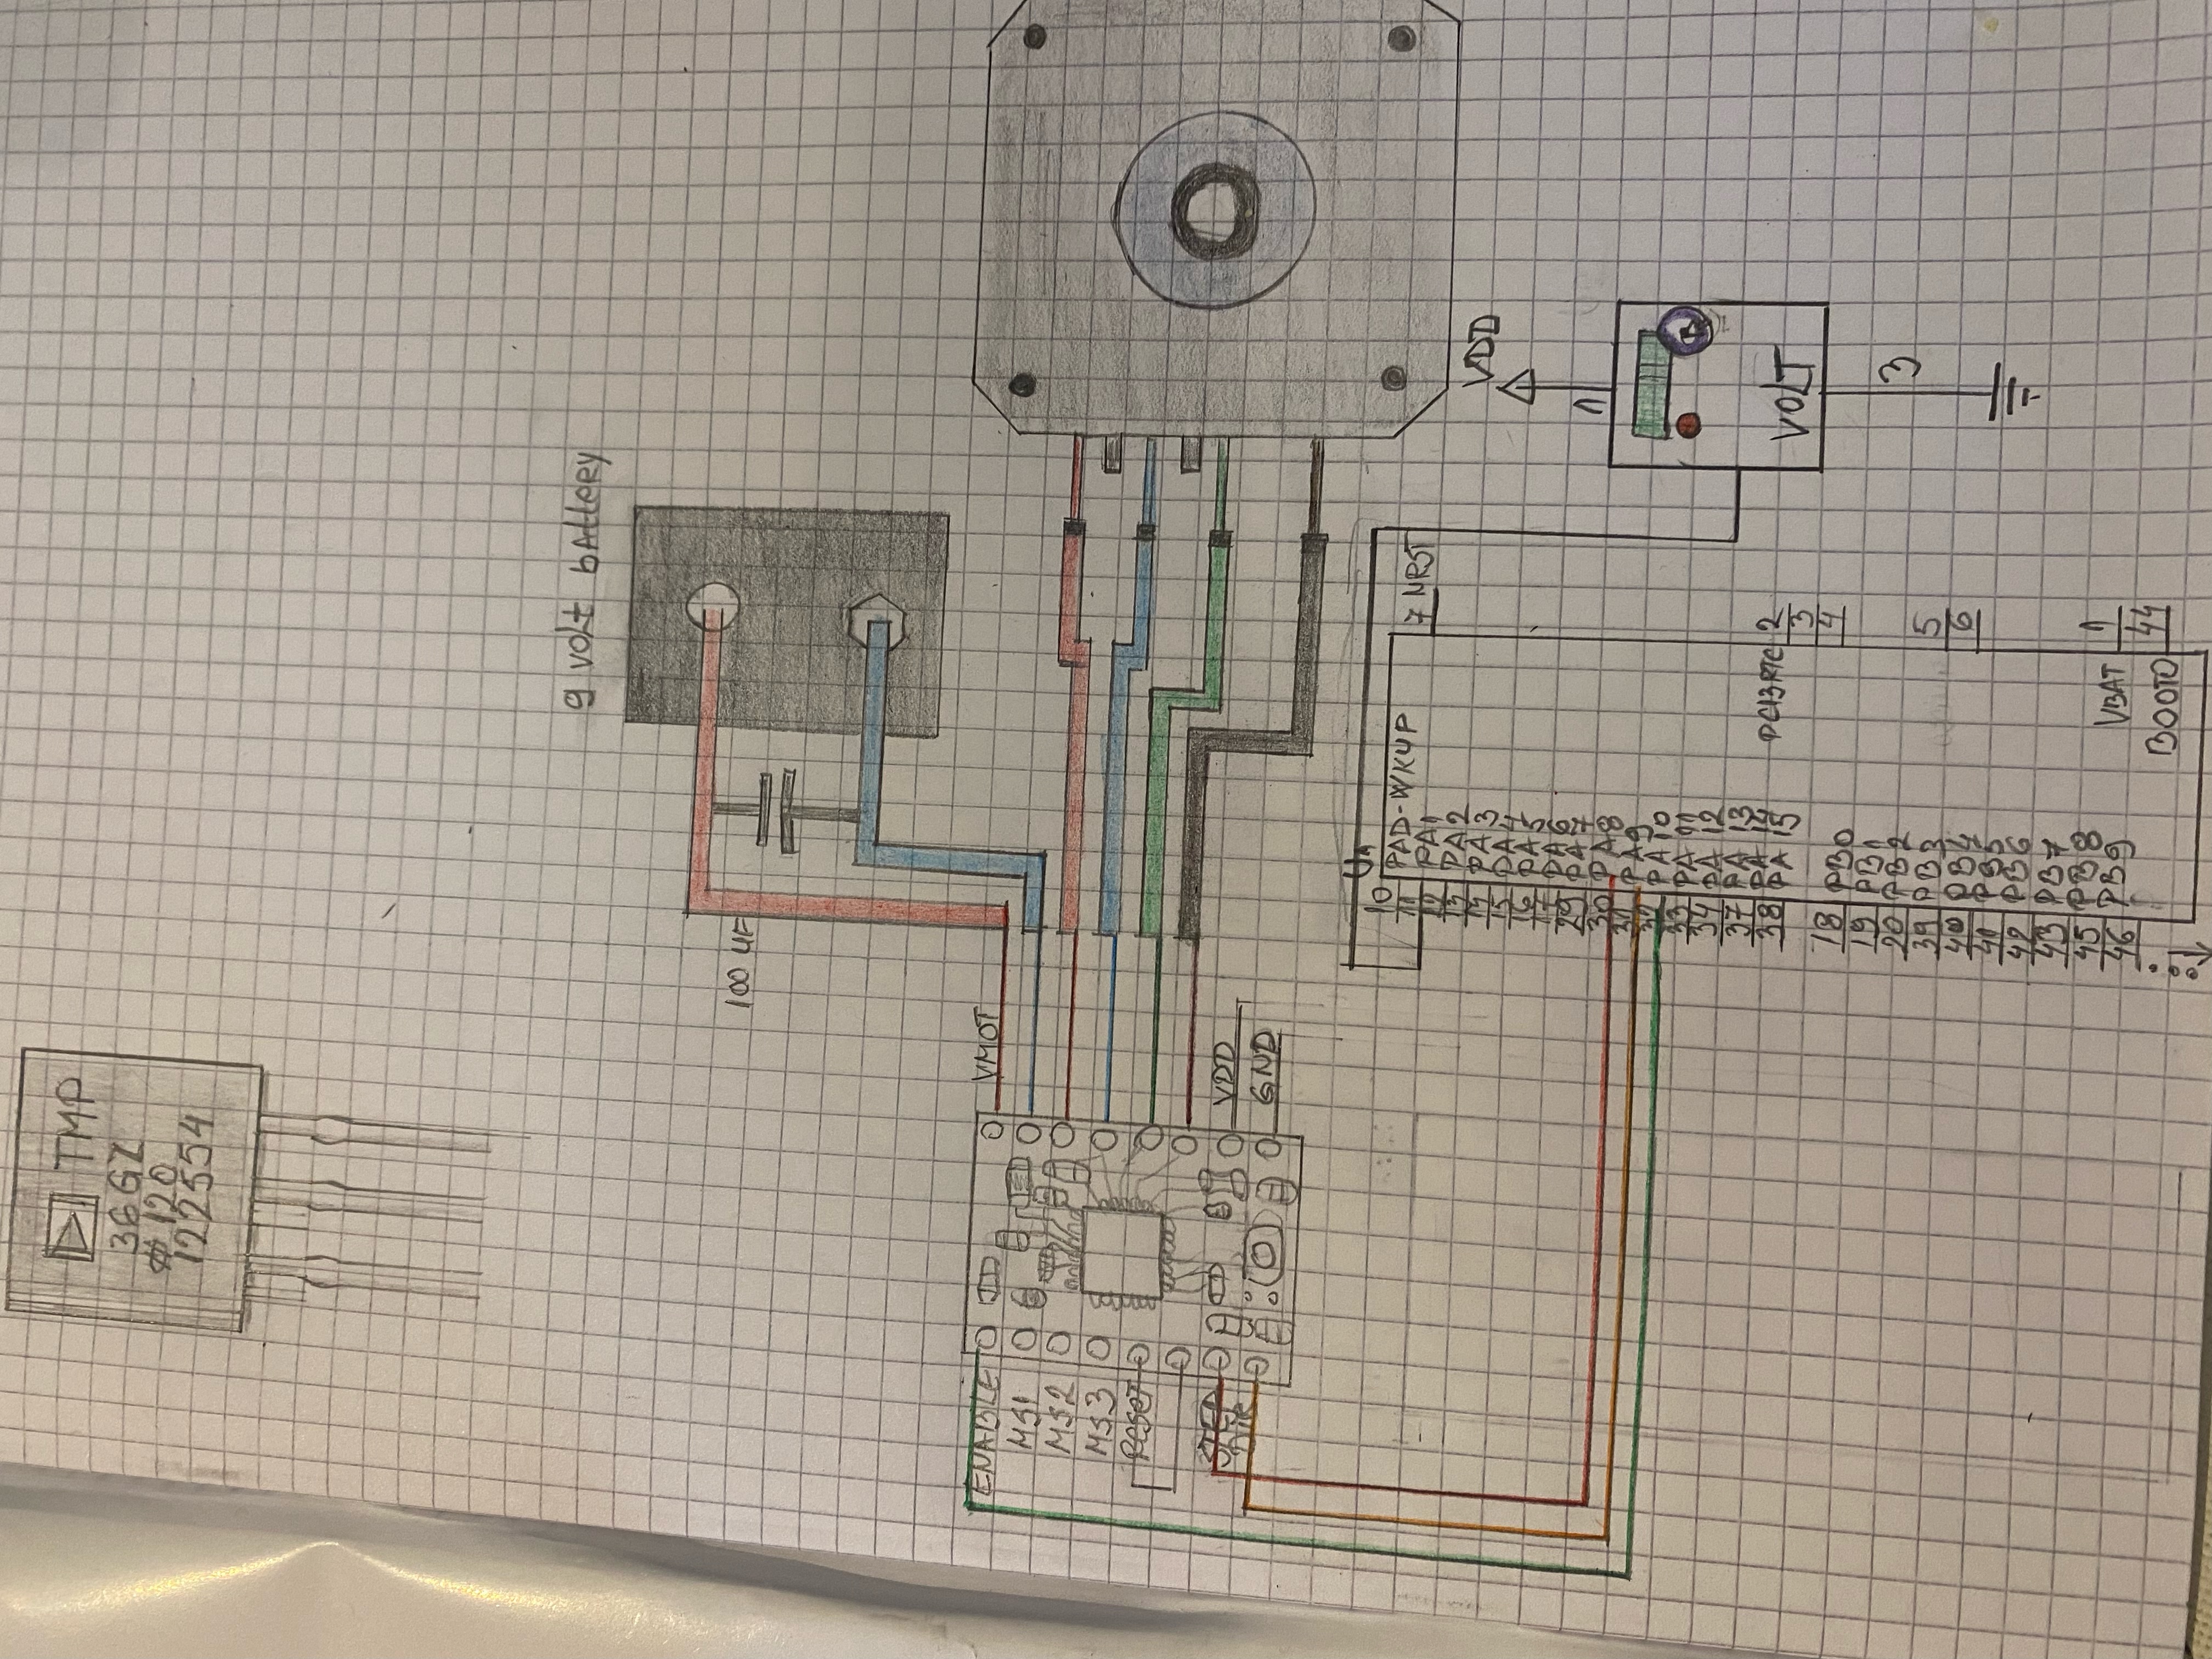 TMP
36GZ
#120
122554
9 volt battery
100 uF
ENABLE
MS1
MS2
MS3
RESET
STEP
DIR
VMOT
VDD
GND
U1
10 PA0-WKUP
11 PA1
12 PA2
13 PA3
14 PA4
15 PA5
16 PA6
17 PA7
29 PA8
30 PA9
31 PA10
32 PA11
33 PA12
34 PA13
37 PA14
38 PA15
18 PB0
19 PB1
20 PB2
39 PB3
40 PB4
41 PB5
42 PB6
43 PB7
45 PB8
46 PB9
7 NRST
PC13RTC 2
3
4
5
6
VBAT 1
BOOT0 44
VDD
1
R
VOLT
3